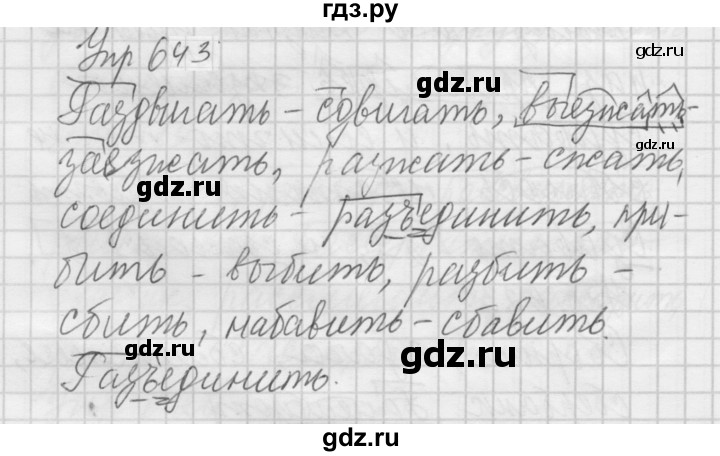 гдз.ру
Упр 643
Раздвигать – сдвигать, выезжать –
заезжать, разжать – сжать,
соединить – разъединить, при-
бить – выбить, разбить –
сбить, набавить – сбавить.
Разъединить.
gdz.ru
gdz.ru
gdz.ru
gdz.ru
gdz.ru
gdz.ru
gdz.ru
gdz.ru